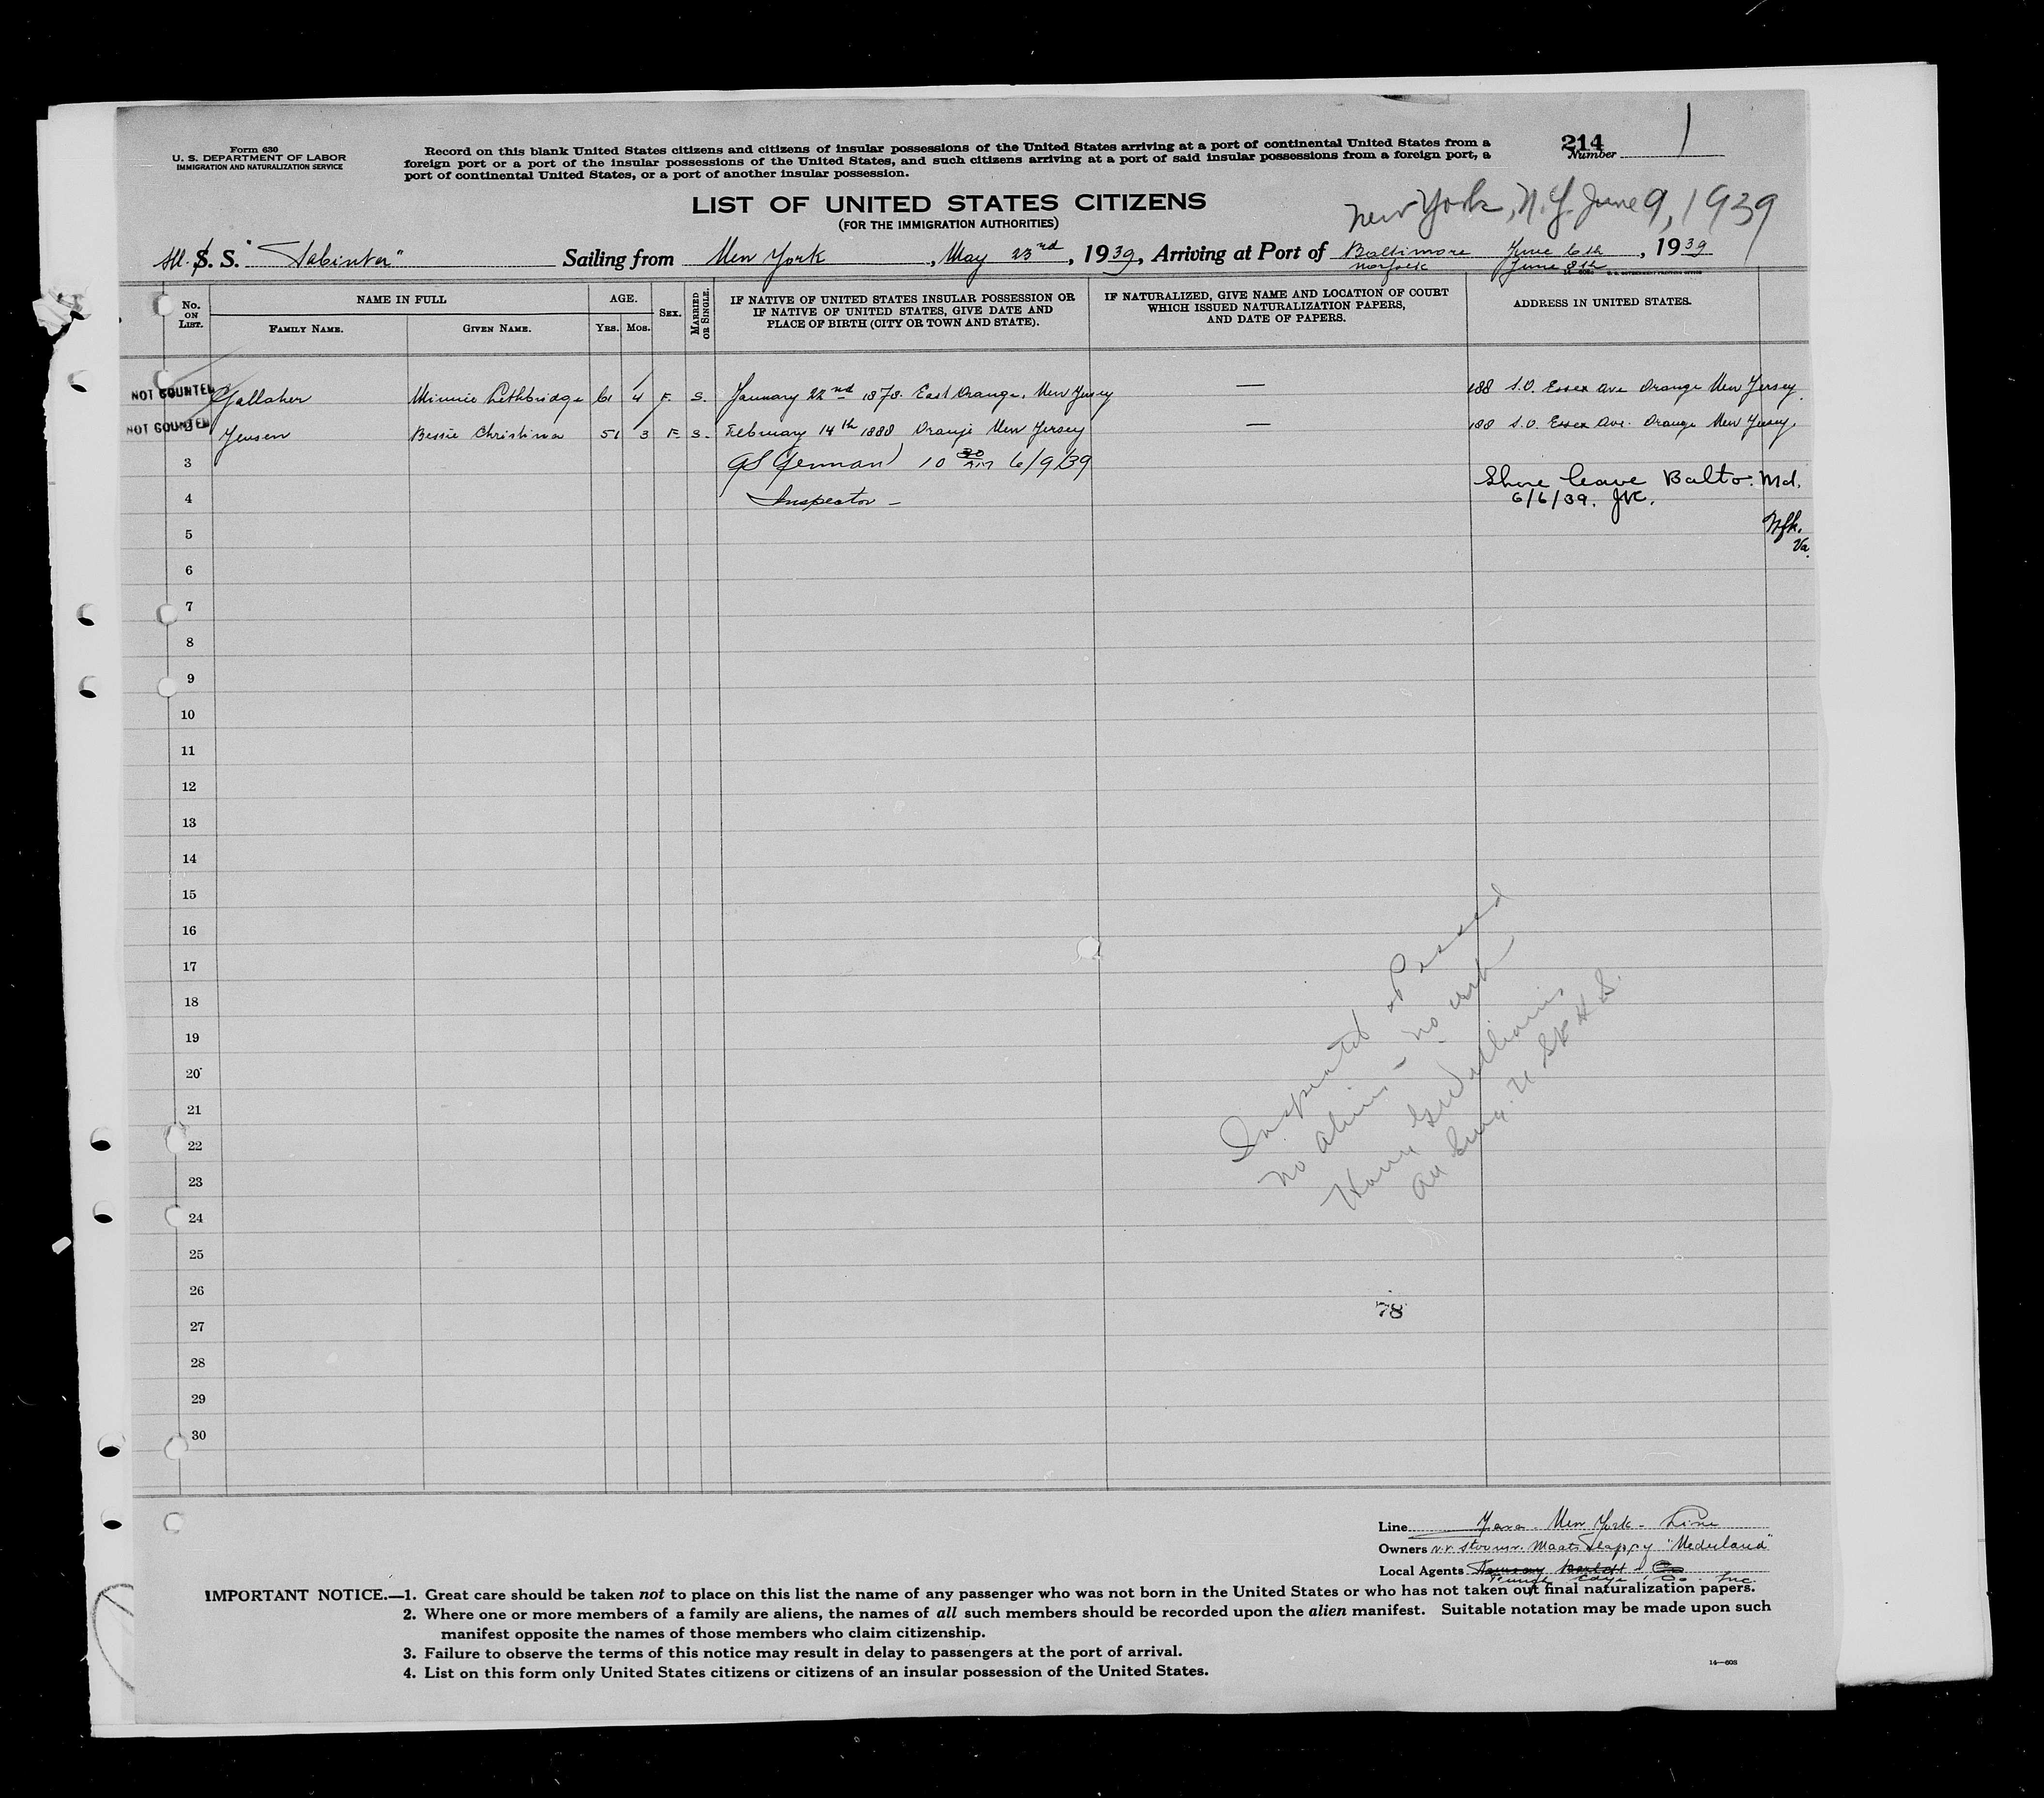 Form 630
U. S. DEPARTMENT OF LABOR
IMMIGRATION AND NATURALIZATION SERVICE
Record on this blank United States citizens and citizens of insular possessions of the United States arriving at a port of continental United States from a
foreign port or a port of the insular possessions of the United States, and such citizens arriving at a port of said insular possessions from a foreign port, a
port of continental United States, or a port of another insular possession.
214
Number 1
LIST OF UNITED STATES CITIZENS
(FOR THE IMMIGRATION AUTHORITIES)
New York, N.Y. June 9, 1939
S. S. "Tabinta" Sailing from New York, May 23rd, 1939, Arriving at Port of Baltimore June 6th, 1939
Norfolk June 8th
No. ON LIST.
NAME IN FULL
FAMILY NAME.
GIVEN NAME.
AGE.
YRS. MOS.
SEX.
MARRIED OR SINGLE.
IF NATIVE OF UNITED STATES INSULAR POSSESSION OR
IF NATIVE OF UNITED STATES, GIVE DATE AND
PLACE OF BIRTH (CITY OR TOWN AND STATE).
IF NATURALIZED, GIVE NAME AND LOCATION OF COURT
WHICH ISSUED NATURALIZATION PAPERS,
AND DATE OF PAPERS.
ADDRESS IN UNITED STATES.
NOT COUNTED Gallaher Minnie Lethbridge 61 4 F. S. January 22nd 1878. East Orange, New Jersey — 188 S.O. Essex Ave Orange New Jersey.
NOT COUNTED Jensen Bessie Christina 51 3 F. S. February 14th 1888 Oranje New Jersey — 188 S.O. Essex Ave. Orange New Jersey.
3 10 30 AM 6/9/39
Shore leave Balto. Md.
4 Inspector -
6/6/39. JVC.
5
Nfk.
Va.
6
7
8
9
10
11
12
13
14
15
16
17
18
19
20
21
22
23
24
25
26
27
28
29
30
Inspected & Passed
no aliens - no
Williams
78
Line Java - New York - Line
Owners N.V. Stoomv. Maatschappy "Nederland"
Local Agents
& Co. Inc.
IMPORTANT NOTICE.—1. Great care should be taken not to place on this list the name of any passenger who was not born in the United States or who has not taken out final naturalization papers.
2. Where one or more members of a family are aliens, the names of all such members should be recorded upon the alien manifest. Suitable notation may be made upon such
manifest opposite the names of those members who claim citizenship.
3. Failure to observe the terms of this notice may result in delay to passengers at the port of arrival.
4. List on this form only United States citizens or citizens of an insular possession of the United States.
14—608